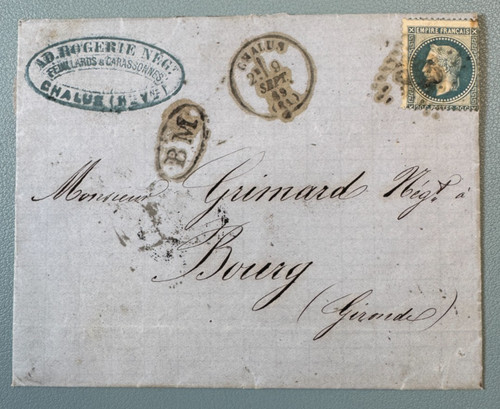 AD. ROGERIE NÉGT
FEUILLARDS & CARASSONNES
CHALUS (HTE VNE)
CHALUS
2E
9
SEPT
69
(81)
EMPIRE FRANÇAIS
BM
Monsieur Grimard Négt. à
Bourg
(Gironde)